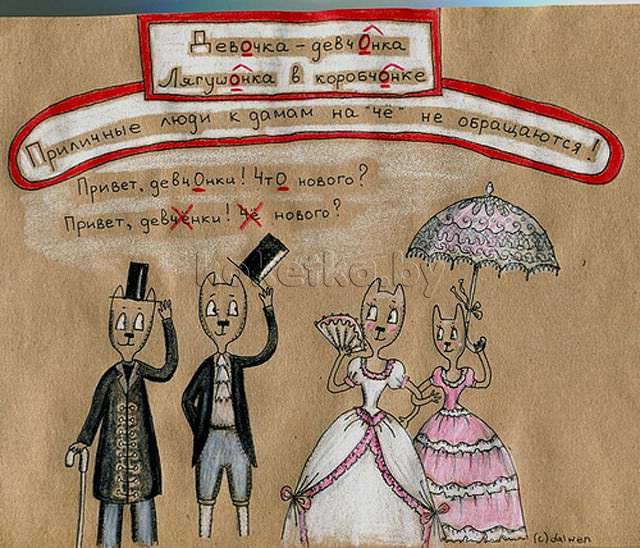 Девочка - девчОнка
Лягушонка в коробчонке
Приличные люди к дамам на "чё" не обращаются!
Привет, девчОнки! ЧтО нового?
Привет, девчёнки! Чё нового?
koketko.by
(c)dalwen